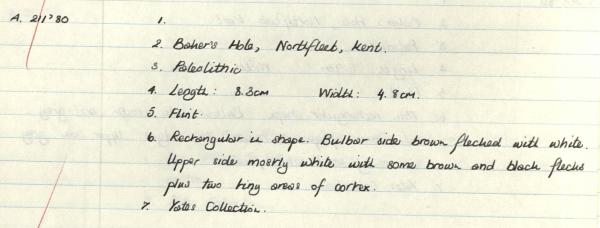 A. 211'80 1.
2. Baker's Hole, Northfleet, Kent.
3. Paleolithic
4. Length: 8.3cm Width: 4.8cm.
5. Flint
6. Rectangular in shape. Bulbar side brown flecked with white.
Upper side mostly white with some brown and black flecks
plus two tiny areas of cortex.
7. Yates Collection.